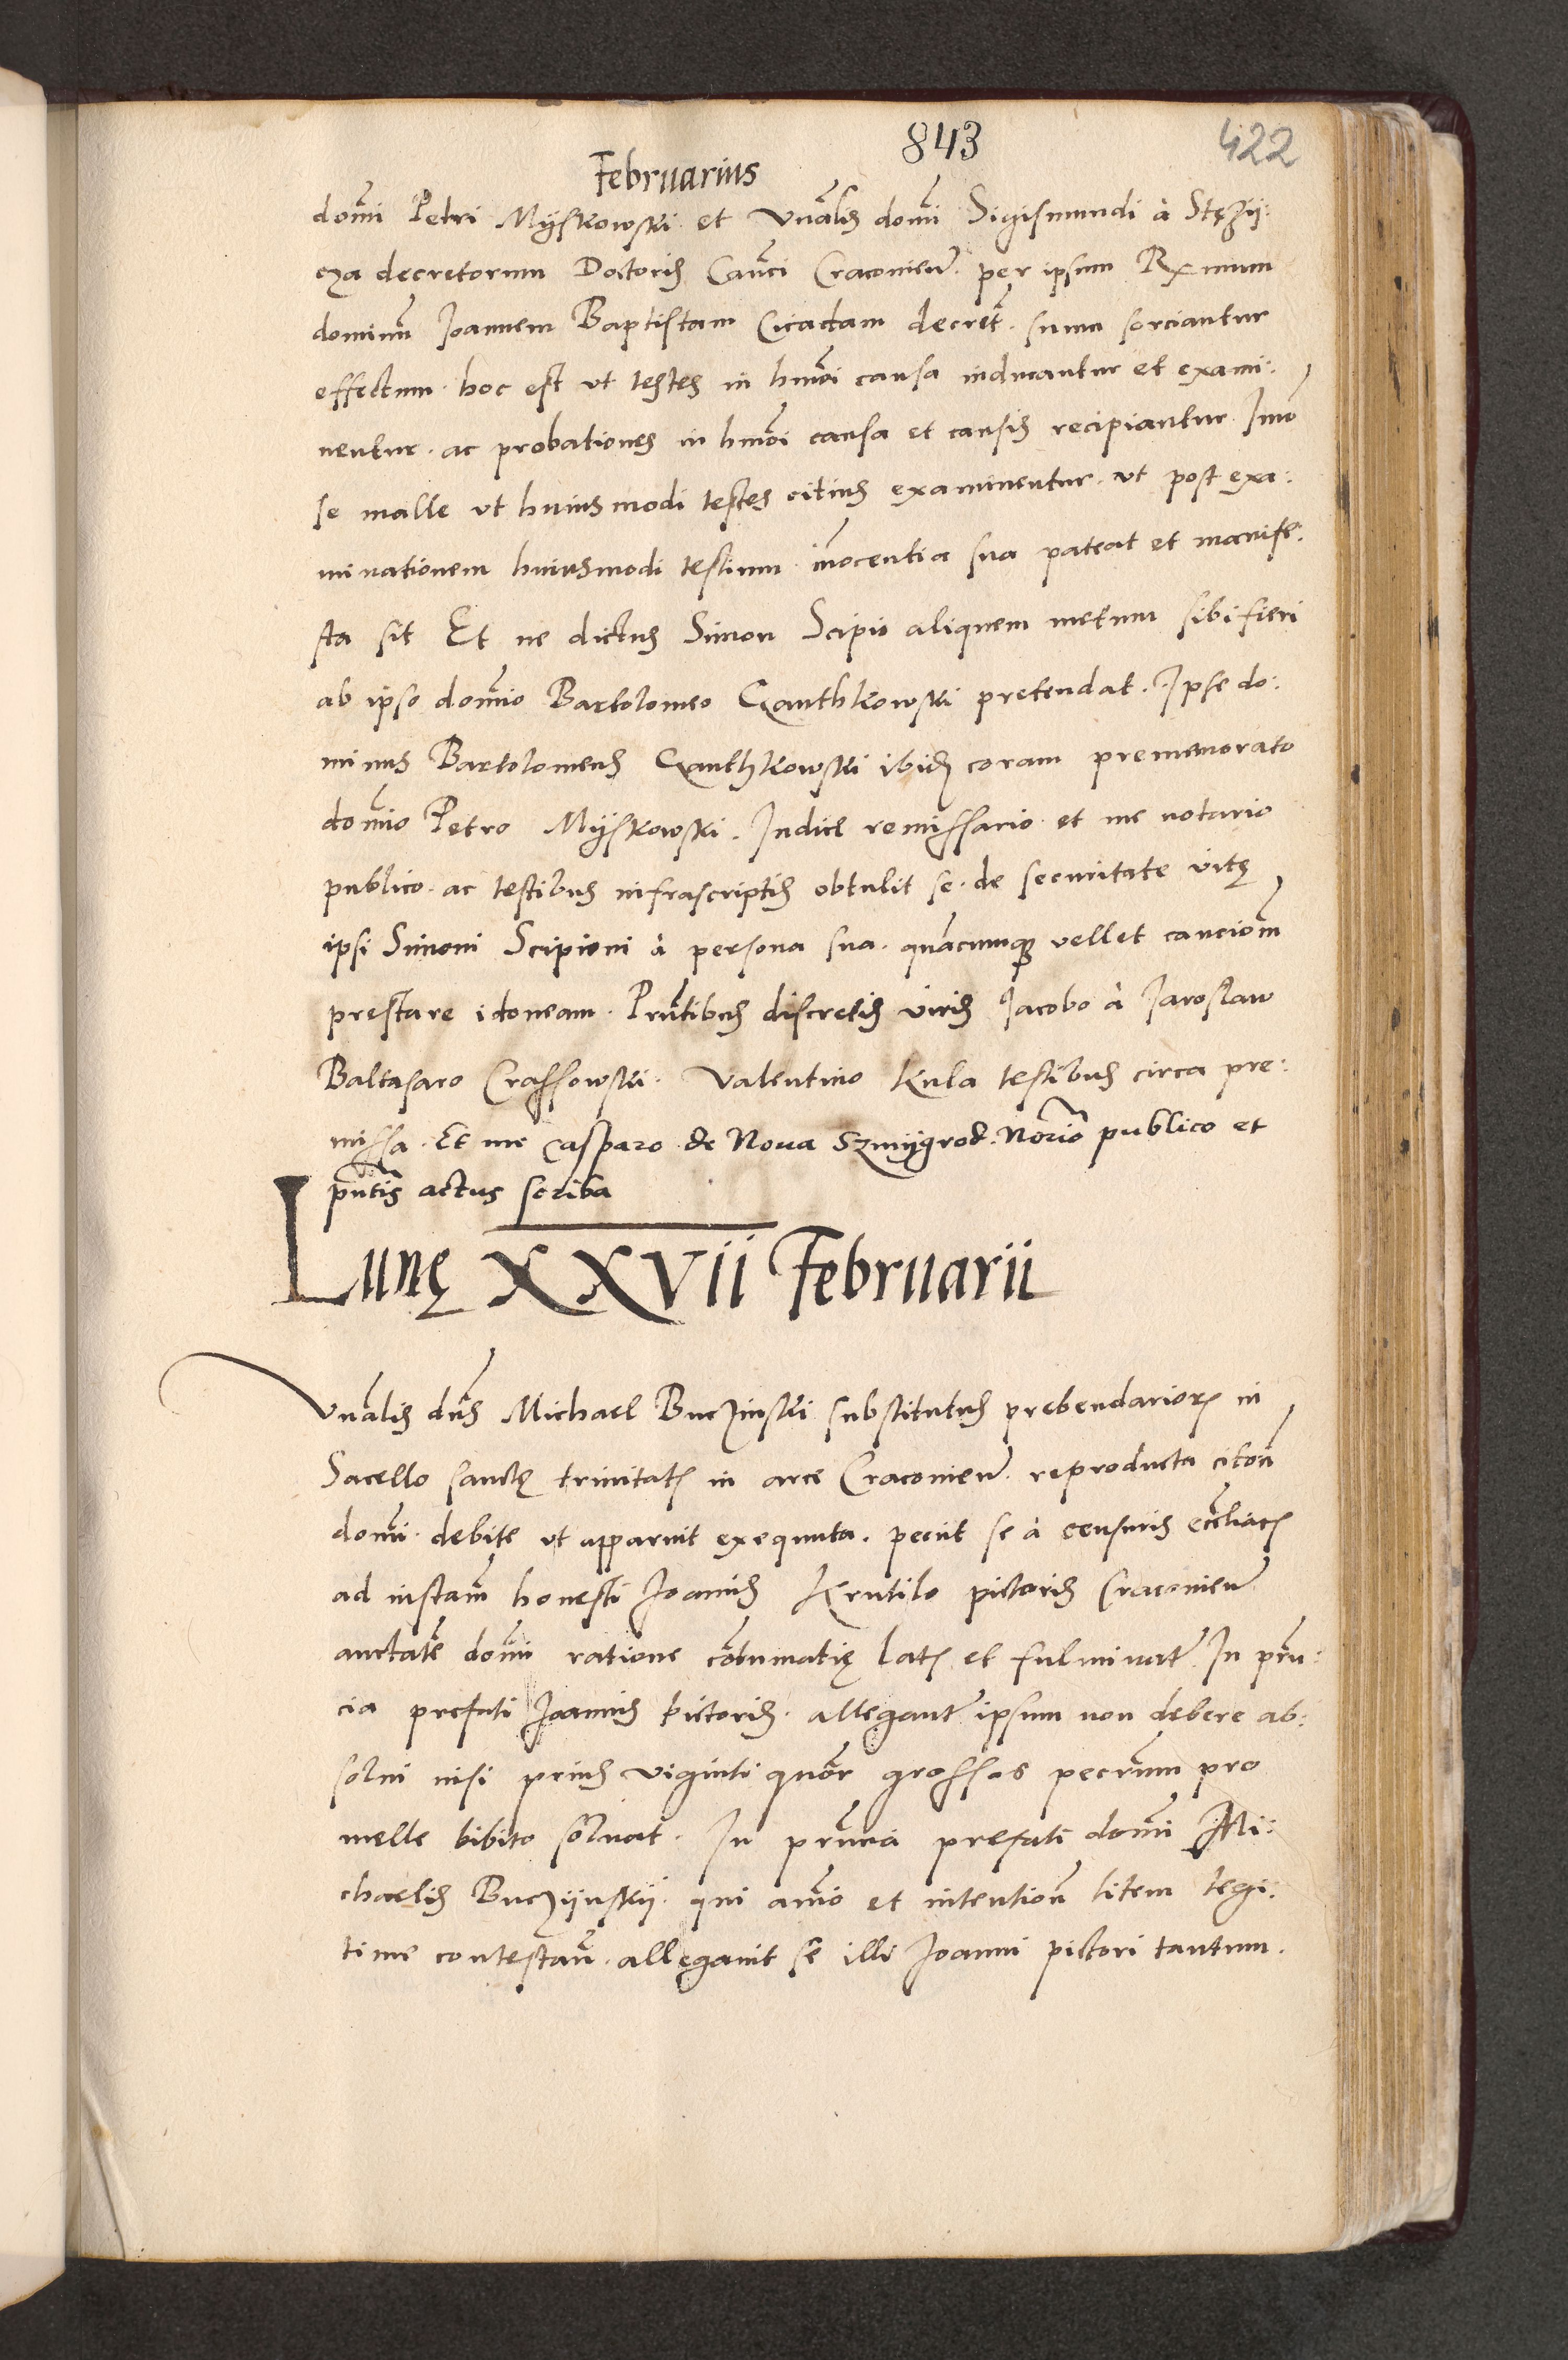 843
422
Februarius
domi Petri Myskowski et Vnalis domi Sigismundi à Stęzy:
cza decretorum Doctoris Canci Cracovien. per ipsum Rxmum
dominum Joannem Baptistam Cicadam decret. suum sorciantur
effectum. hoc est vt testes in hmoi causa inducantur et exami:
nentur. ac probationes in hmoi causa et causis recipiantur. Imo
se malle vt huiusmodi testes citius examinentur. vt post exa:
minationem huiusmodi testium innocentia sua pateat et manife:
sta sit Et ne dictus Simon Scipio aliquem metum sibi fieri
ab ipso domino Bartolomeo Ganthkowski pretendat. Ipse do:
minus Bartolomeus Ganthkowski ibidem coram prememorato
domino Petro Myskowski. Judice remissario et me notario
publico. ac testibus infrascriptis obtulit se. de securitate vitę
ipsi Simoni Scipioni à persona sua. quacunque vellet caucionem
prestare idoneam. Pntibus discretis viris Jacobo à Jaroslaw
Baltasaro Crassowski. Valentino Kula testibus circa pre:
missa. Et me Casparo de Noua Szmygrod. Norio publico et
pntis actus scriba
Lunę XXVII Februarii
Vnalis dns Michael Buczinski substitutus prebendariorum in
Sacello sanctę trinitatis in arce Cracovien. reproducta citon
domi. debite vt apparuit exequuta. peciit se à censuris ecclicis
ad instam honesti Joannis Krutilo pictoris Cracovien
auctate domi ratione contumatię latis et fulminat. In pntu:
cia prefati Joannis pictoris. allegant ipsum non debere ab:
solui nisi prius viginti quor grossos pecuniarum pro
melle bibito soluat. In pntia prefati domi Mi:
chaelis Buczynskij. qui animo et intention litem legi:
time contestan. allegauit se illi Joanni pictori tantum.